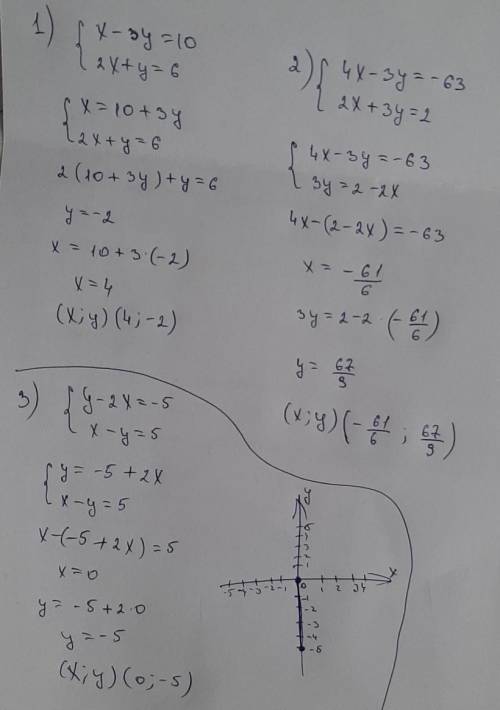 1) { x - 3y = 10
2x + y = 6
{ x = 10 + 3y
2x + y = 6
2(10 + 3y) + y = 6
y = -2
x = 10 + 3·(-2)
x = 4
(x; y) (4; -2)
2) { 4x - 3y = -63
2x + 3y = 2
{ 4x - 3y = -63
3y = 2 - 2x
4x - (2 - 2x) = -63
x = -61/6
3y = 2 - 2·(-61/6)
y = 67/9
(x; y) (-61/6; 67/9)
3) { y - 2x = -5
x - y = 5
{ y = -5 + 2x
x - y = 5
x - (-5 + 2x) = 5
x = 0
y = -5 + 2·0
y = -5
(x; y) (0; -5)
y
x
-5 -4 -3 -2 -1 0 1 2 3 4
-1
-2
-3
-4
-5